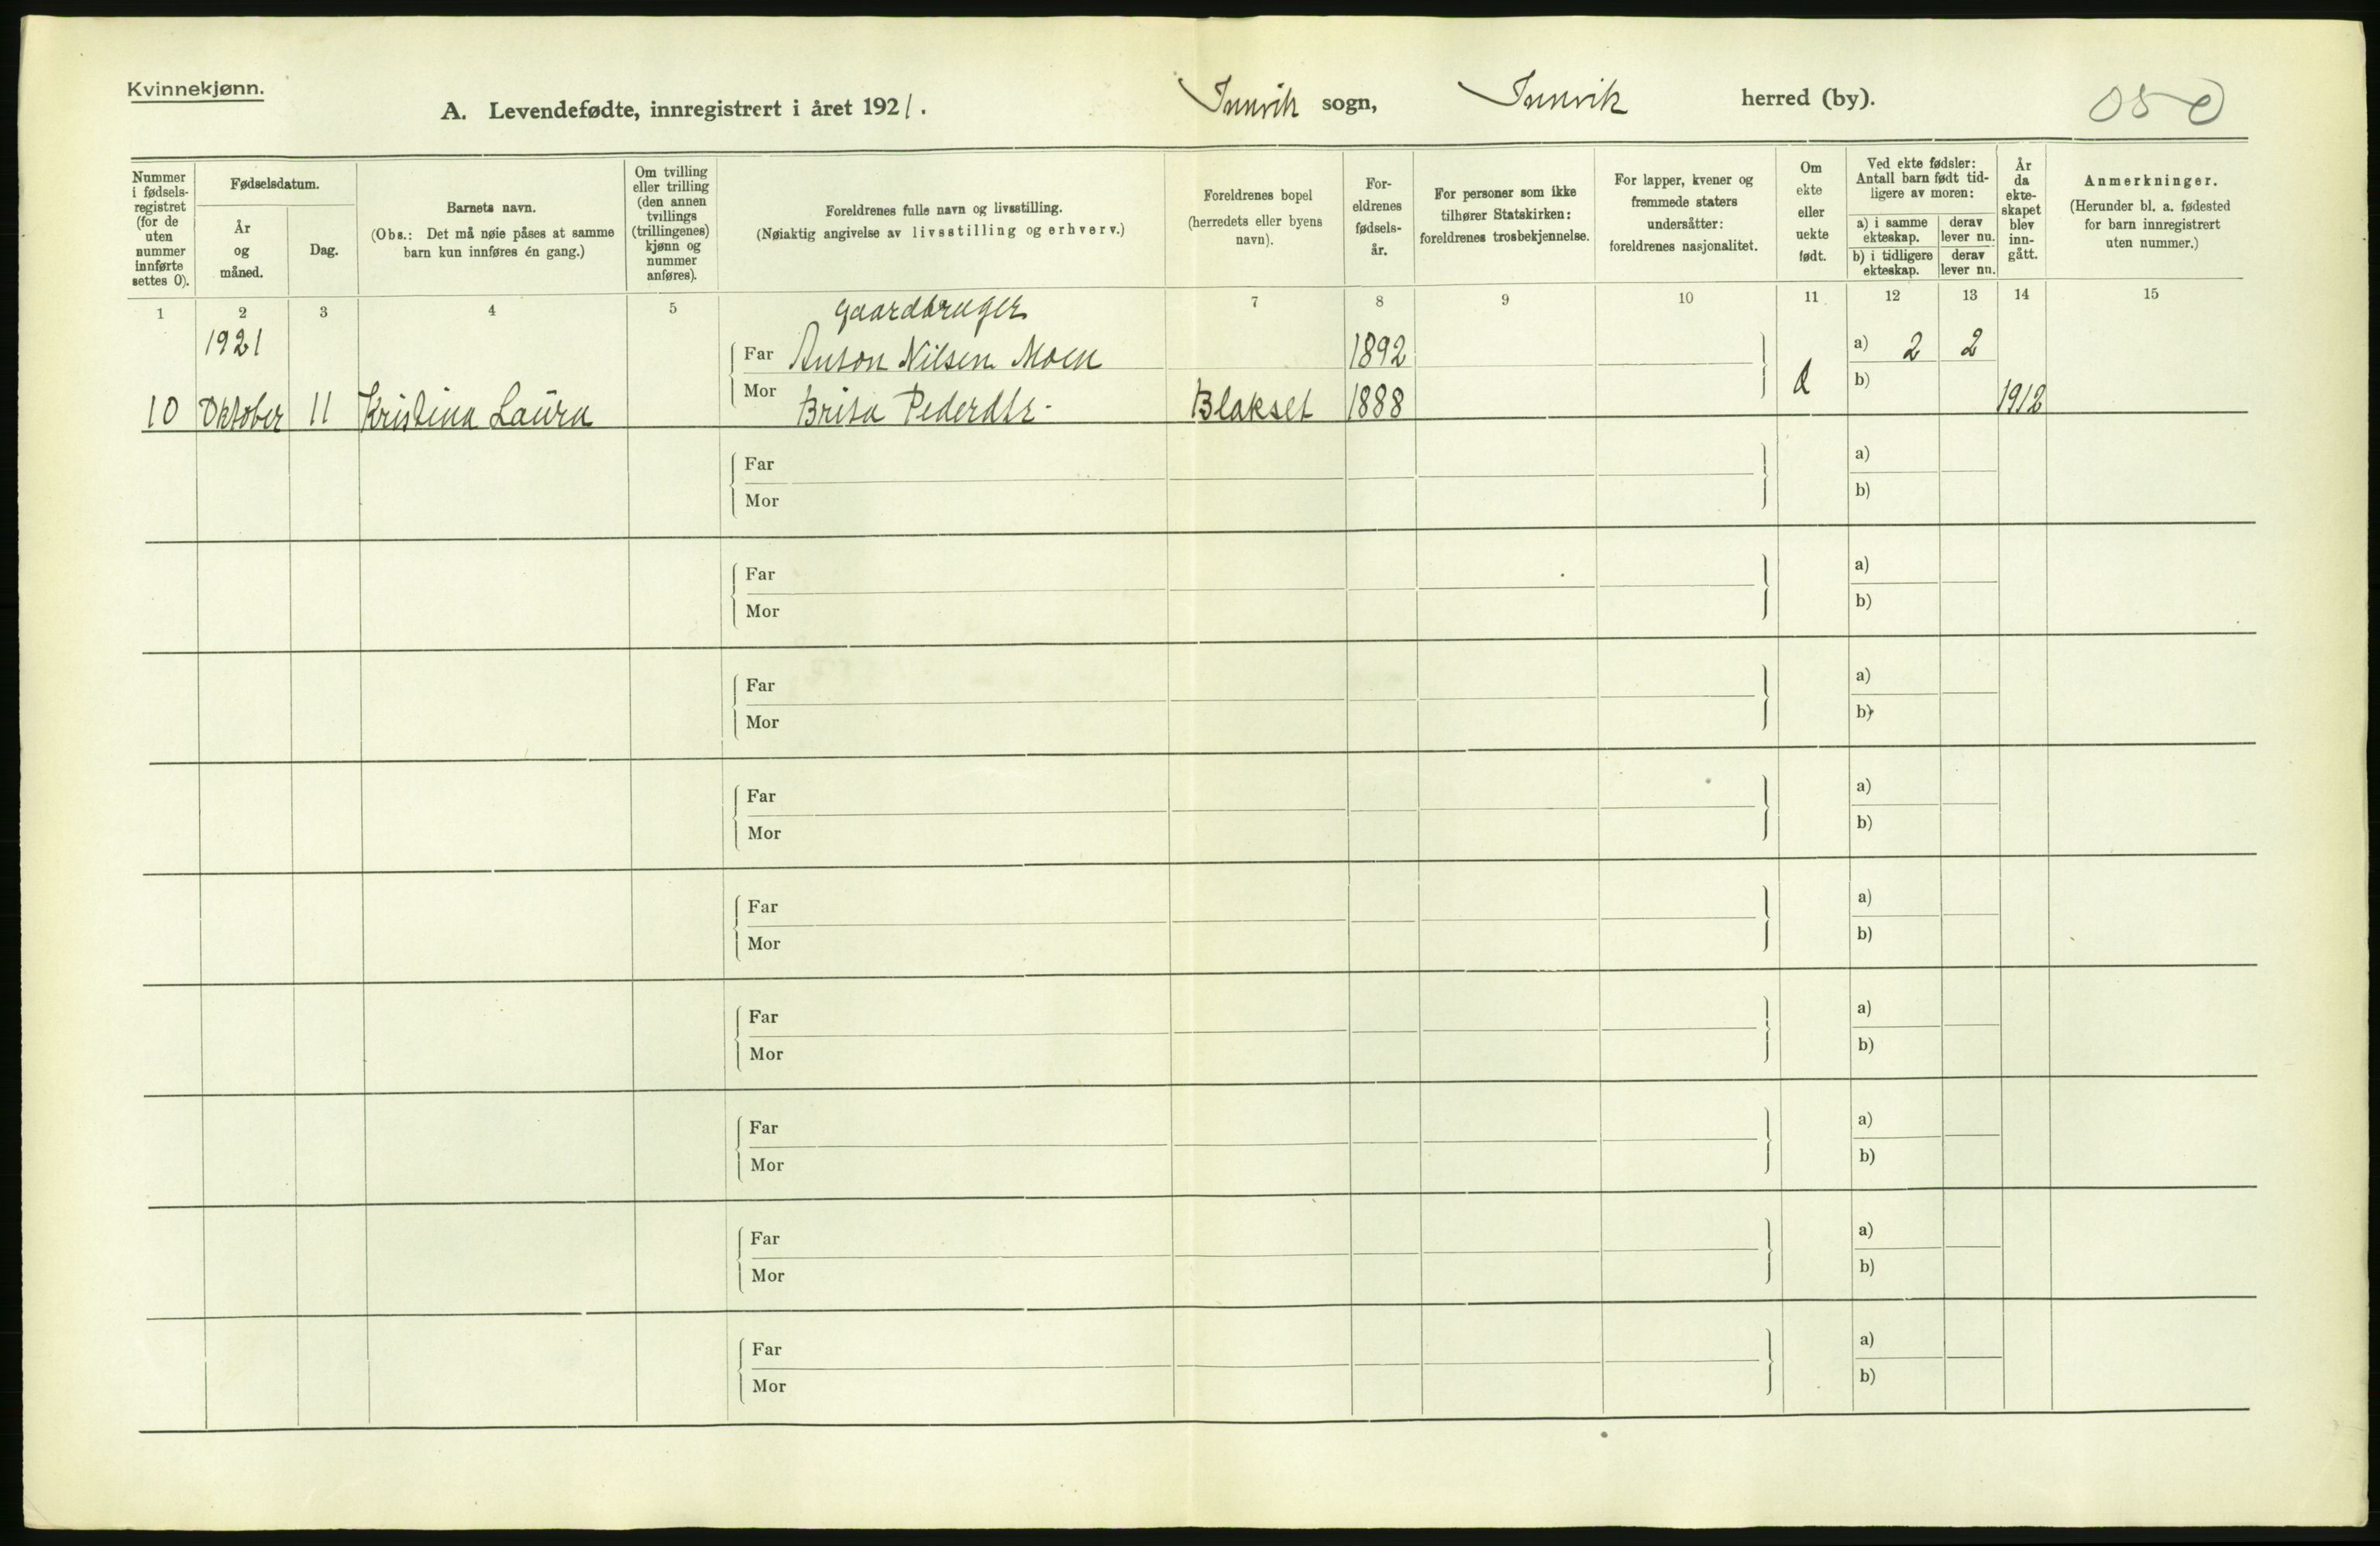 Kvinnekjønn.
A. Levendefødte, innregistrert i året 1921. Innvik sogn, Innvik herred (by). 050
Nummer i fødsels- registret (for de uten nummer innførte settes 0).
Fødselsdatum.
År og måned.
Dag.
Barnets navn.
(Obs.: Det må nøie påses at samme barn kun innføres én gang.)
Om tvilling eller trilling (den annen tvillings (trillingenes) kjønn og nummer anføres).
Foreldrenes fulle navn og livsstilling.
(Nøiaktig angivelse av livsstilling og erhverv.)
Foreldrenes bopel (herredets eller byens navn).
For- eldrenes fødsels- år.
For personer som ikke tilhører Statskirken: foreldrenes trosbekjennelse.
For lapper, kvener og fremmede staters undersåtter: foreldrenes nasjonalitet.
Om ekte eller uekte født.
Ved ekte fødsler: Antall barn født tid- ligere av moren:
a) i samme ekteskap. derav lever nu.
b) i tidligere ekteskap. derav lever nu.
År da ekte- skapet blev inn- gått.
Anmerkninger.
(Herunder bl. a. fødested for barn innregistrert uten nummer.)
1 2 3 4 5 7 8 9 10 11 12 13 14 15
gaardbruger
1921 Far Anton Nilsen Moen 1892 a) 2 2
10 Oktober 11 Kristina Laura Mor Brita Pedersdtr. Blakset 1888 b) 1912
Far a)
Mor b)
Far a)
Mor b)
Far a)
Mor b)
Far a)
Mor b)
Far a)
Mor b)
Far a)
Mor b)
Far a)
Mor b)
Far a)
Mor b)
Far a)
Mor b)